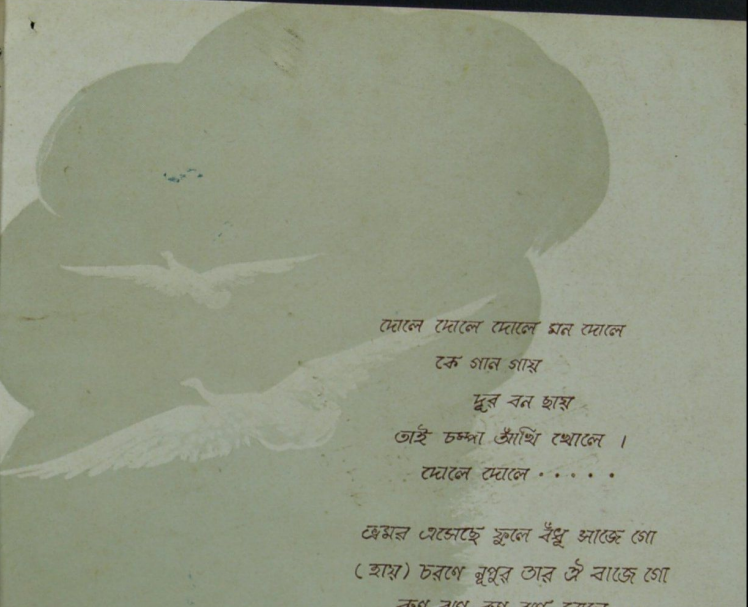 দোলে দোলে দোলে মন দোলে
কে গান গায়
দূর বন ছায়
তাই চম্পা আঁখি খোলে ।
দোলে দোলে · · · · ·
ভ্রমর এসেছে ফুলে বঁধূ সাজে গো
(হায়) চরণে নূপুর তার ঐ বাজে গো